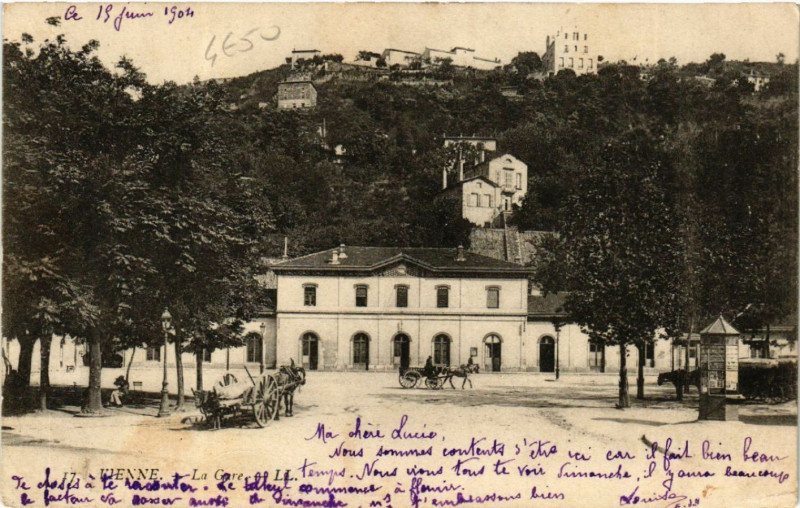 Ce 15 Juin 1904
4e50
Ma chère Lucie,
Nous sommes contents d'être ici car il fait bien beau
temps. Nous irons tous te voir Dimanche, il y aura beaucoup
17. VIENNE. - La Gare - LL.
de choses à te raconter. Le tilleul commence à fleurir.
le facteur va passer aussi à Dimanche, ns t'embrassons bien
Louise